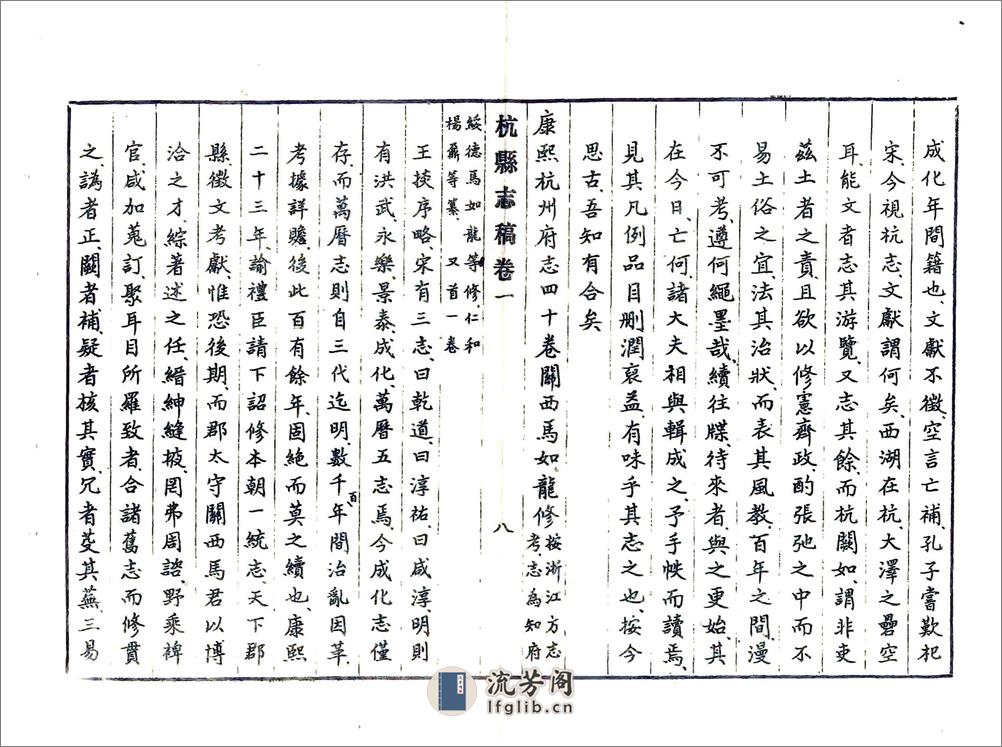 成化年間籍也、文獻不徵、空言亡補、孔子嘗歎杞
宋、今視杭志、文獻謂何矣、西湖在杭、大澤之礨空
耳、能文者志其游覽、又志其餘、而杭闕如、謂非吏
茲土者之責、且欲以修憲齊政、酌張弛之中而不
易土俗之宜、法其治狀、而表其風教、百年之間、漫
不可考、遵何繩墨哉、續往牒、待來者、與之更始、其
在今日、亡何、諸大夫相與輯成之、予手帙而讀焉、
見其凡例品目刪潤裒益、有味乎其志之也、按今
思古、吾知有合矣
康熙杭州府志四十卷關西馬如龍修按浙江方志
考、志為知府
杭縣志稿卷一
八
綏德馬如龍等修、仁和
楊鼐等纂、又首一卷
王掞序略、宋有三志、曰乾道、曰淳祐、曰咸淳、明則
有洪武、永樂、景泰、成化、萬曆五志焉、今成化志僅
存、而萬曆志則自三代迄明、數千百年間治亂因革、
考據詳贍、後此百有餘年、因絶而莫之續也、康熙
二十三年、諭禮臣請下詔修本朝一統志、天下郡
縣徵文考獻、惟恐後期、而郡太守關西馬君以博
洽之才、綜著述之任、縉紳縫掖、罔弗周諮、野乘裨
官、咸加蒐訂、聚耳目所羅致者、合諸舊志而修貫
之、譌者正、闕者補、疑者核其實、冗者芟其蕪、三易
流芳阁
lfglib.cn